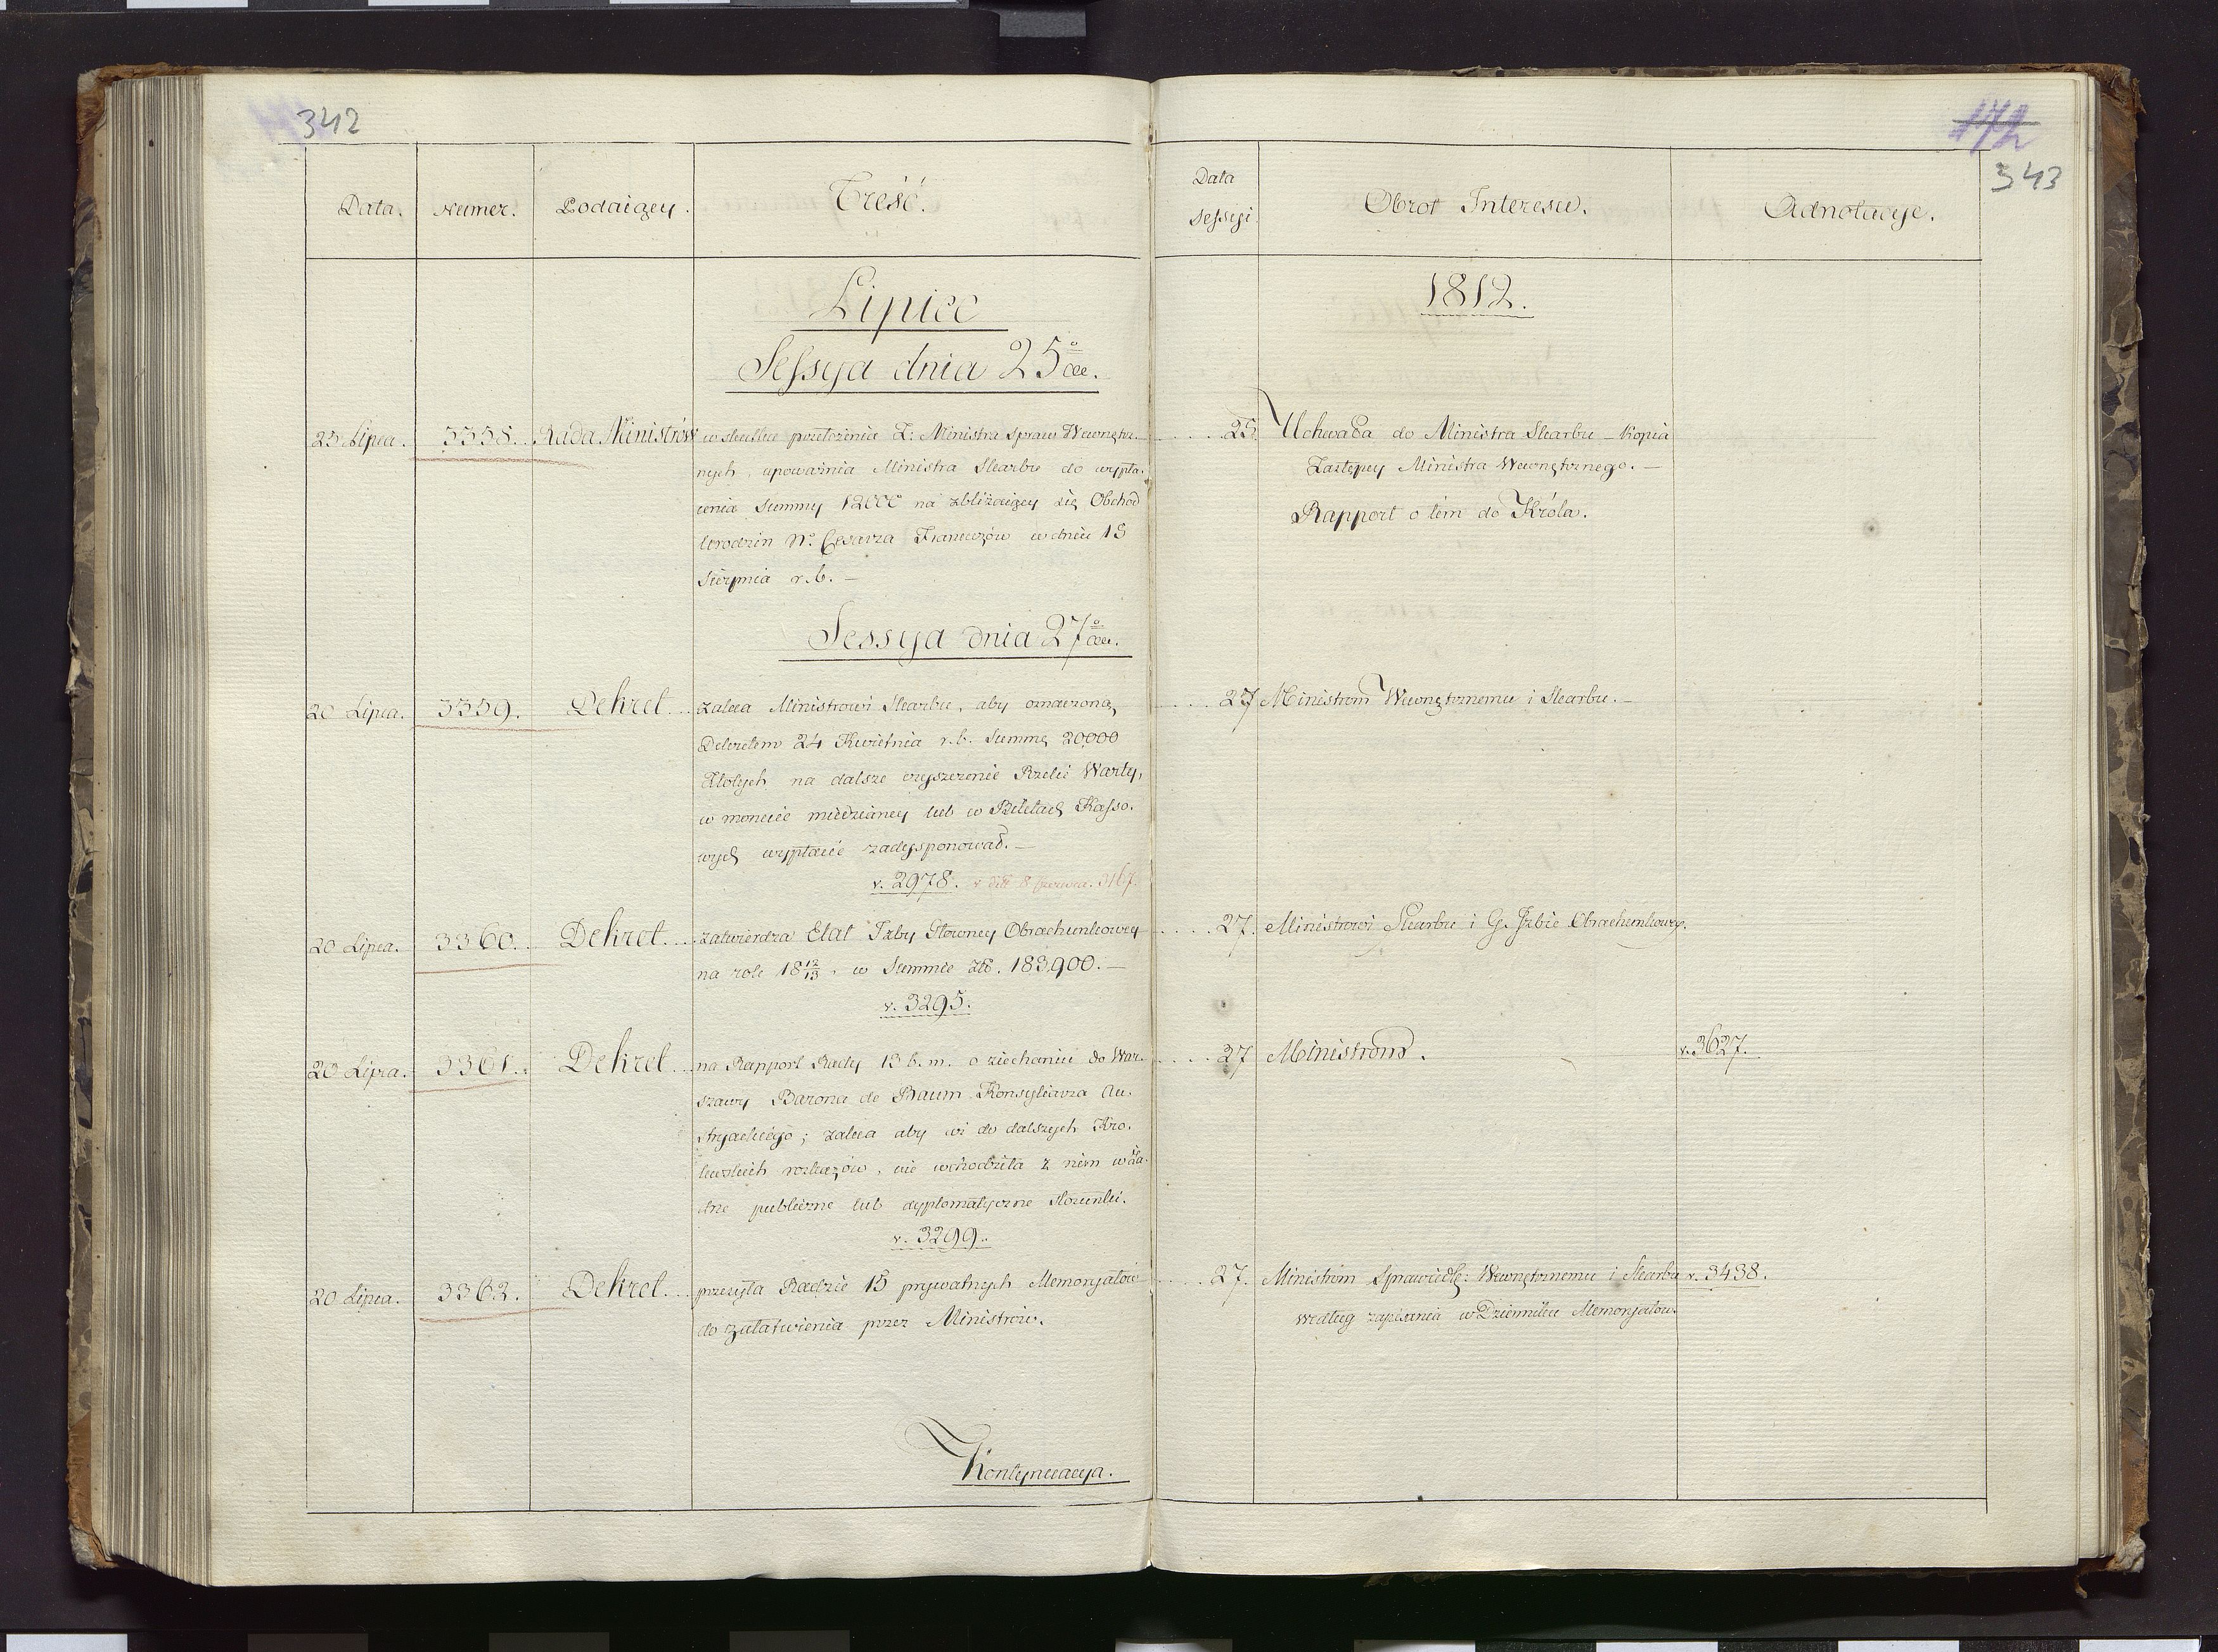 342
Data.
Numer.
Podaiący.
Treść.
Lipiec
Sessya dnia 25º
25 Lipca.
3358.
Rada Ministrów
w skutku przełożenia Z: Ministra spraw Wewnętrz-
nych, upoważnia Ministra Skarbu do wypła-
cenia summy 12000 na zbliżaiący się Obchód
Urodzin N. Cesarza Francuzów w dniu 15
Sierpnia r.b. —
Sessya dnia 27º
20 Lipca.
3359.
Dekret
zaleca Ministrowi Skarbu, aby oznaczoną
Dekretem 24 Kwietnia r.b. Summę 20,000
Złotych na dalsze czyszczenie Rzeki Warty,
w monecie miedzianey lub w Biletach Kasso-
wych wypłacić zadysponował. —
v. 2978. v 8 Czerwca. 3167.
20 Lipca.
3360.
Dekret
zatwierdza Etat Izby Głowney Obrachunkowey
na rok 18 12/13, w Summie Złt. 183,900. —
v. 3295.
20 Lipca.
3361.
Dekret
na Rapport Rady 13 b.m. o ziechaniu do War-
szawy Barona de Baum Konsyliarza Au-
stryackiego; zaleca aby do dalszych Kró-
lewskich rozkazów, nie wchodziła z nim w ża-
dne publiczne lub dyplomatyczne stosunki.
v. 3299.
20 Lipca.
3362.
Dekret
przesyła Radzie 15 prywatnych Memoryałów
do załatwienia przez Ministrów.
Kontynuacya.
172
343
Data
Sessyi
Obrot Interesu.
Adnotacye.
1812.
25
Uchwała do Ministra Skarbu — Kopia
Zastępcy Ministra Wewnętrznego. —
Rapport o tém do Króla.
27
Ministrom Wewnętrznemu i Skarbu. —
27.
Ministrowi Skarbu i G. Izbie Obrachunkowey.
27
Ministrom.
v. 3627.
27.
Ministrom Sprawiedl: Wewnętrznemu i Skarbu
v. 3438.
według zapisania w Dzienniku Memoryałów.